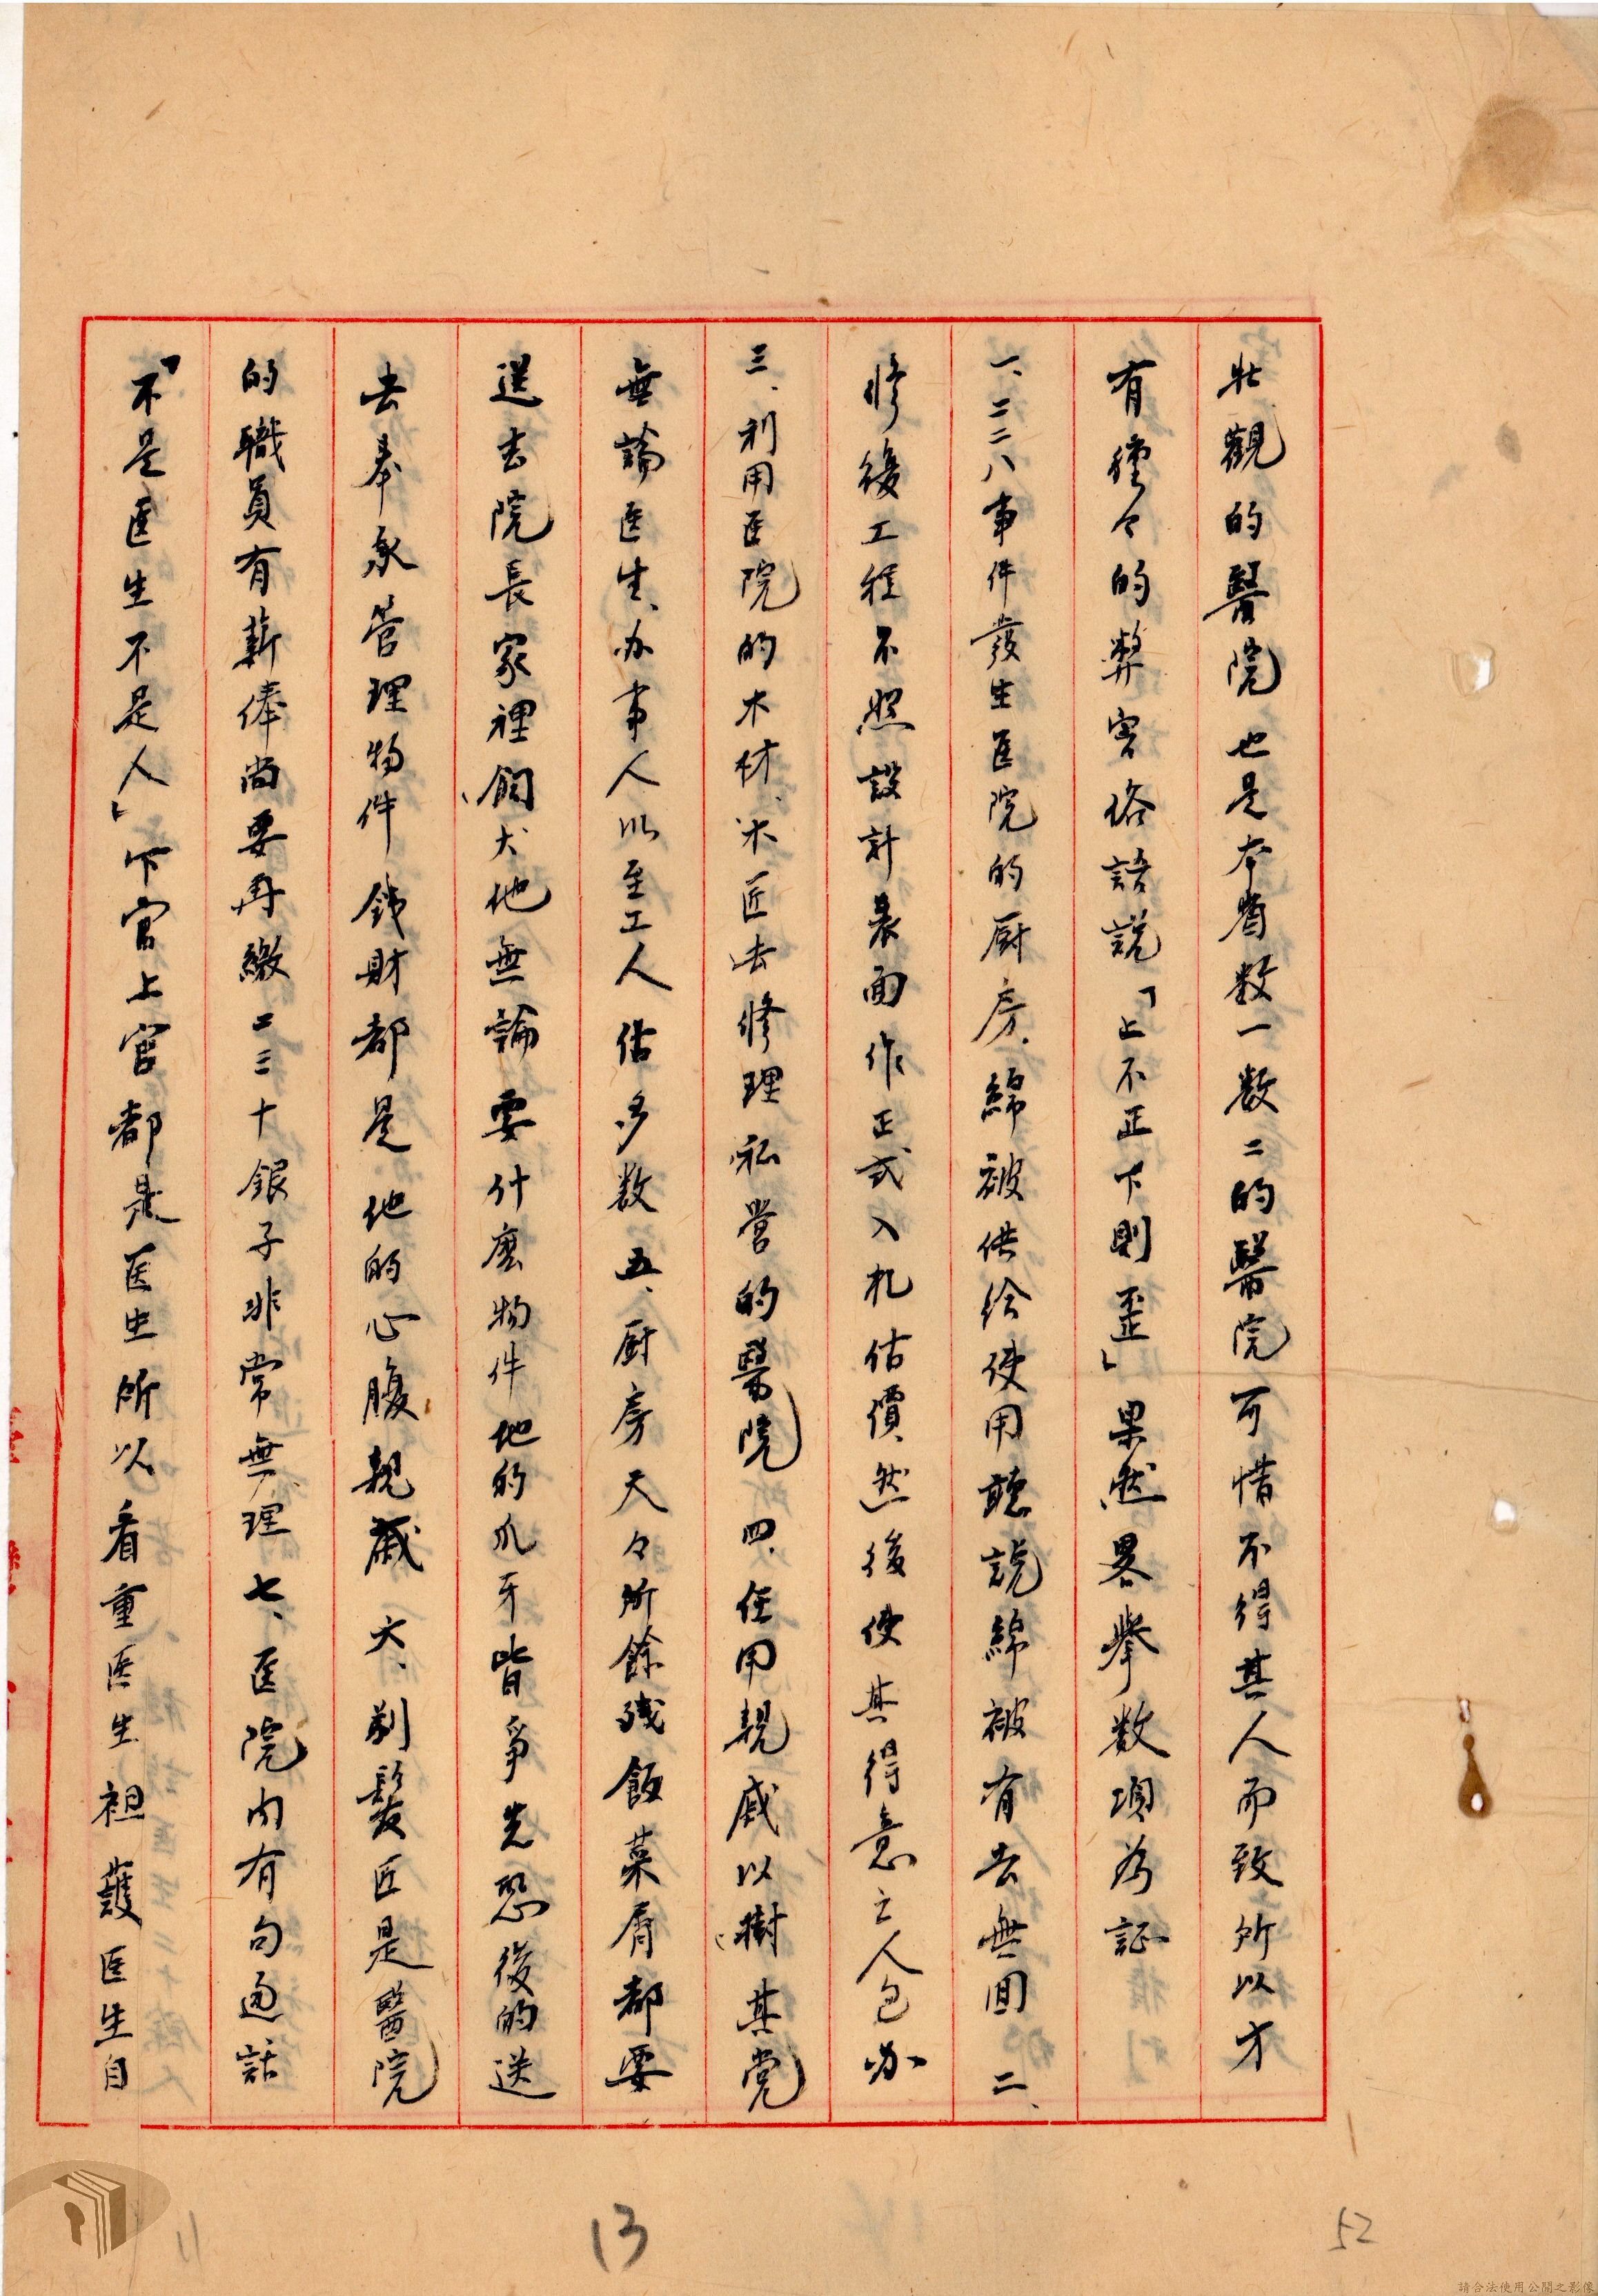 壯觀的醫院也是本省数一数二的醫院可惜不得其人而致所以才
有種々的弊害俗語説「上不正下則歪」果然畧舉数項為証
一、二二八事件發生医院的厨房、綿被供给使用聽説綿被有去無回　二、
修復工程不照設計表面作正式入札估價、然後使其得意之人包办
三、利用医院的木材、木匠去修理私營的醫院　四、任用親戚以樹其党
無論医生、办事人以至工人佔多数　五、厨房天々所餘殘飯菜屑都要
送去院長家裡飼犬他無論要什麽物件他的爪牙皆爭先恐後的送
去奉承管理物件錢財都是他的心腹親戚　六、剃髮匠是醫院
的職員有薪俸尚要再繳二三十銀子非常無理　七、医院内有句通話
「不是医生不是人」下官上官都是医生所以看重医生袒護医生自
13
52
11
請合法使用公開之影像